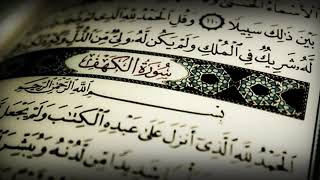 بَيْنَ ذَٰلِكَ سَبِيلًا ١١٠ وَقُلِ ٱلْحَمْدُ لِلَّهِ ٱلَّذِى
لَّهُۥ شَرِيكٌ فِى ٱلْمُلْكِ وَلَمْ يَكُن لَّهُۥ وَلِىٌّ مِّنَ ٱلذُّلِّ وَكَبِّرْهُ
سُورَةُ الكَهْفِ
بِسْمِ ٱللَّهِ ٱلرَّحْمَٰنِ ٱلرَّحِيمِ
ٱلْحَمْدُ لِلَّهِ ٱلَّذِىٓ أَنزَلَ عَلَىٰ عَبْدِهِ ٱلْكِتَٰبَ وَلَمْ يَجْعَل
شَدِيدًا مِّن لَّدُنْهُ وَيُبَشِّرَ